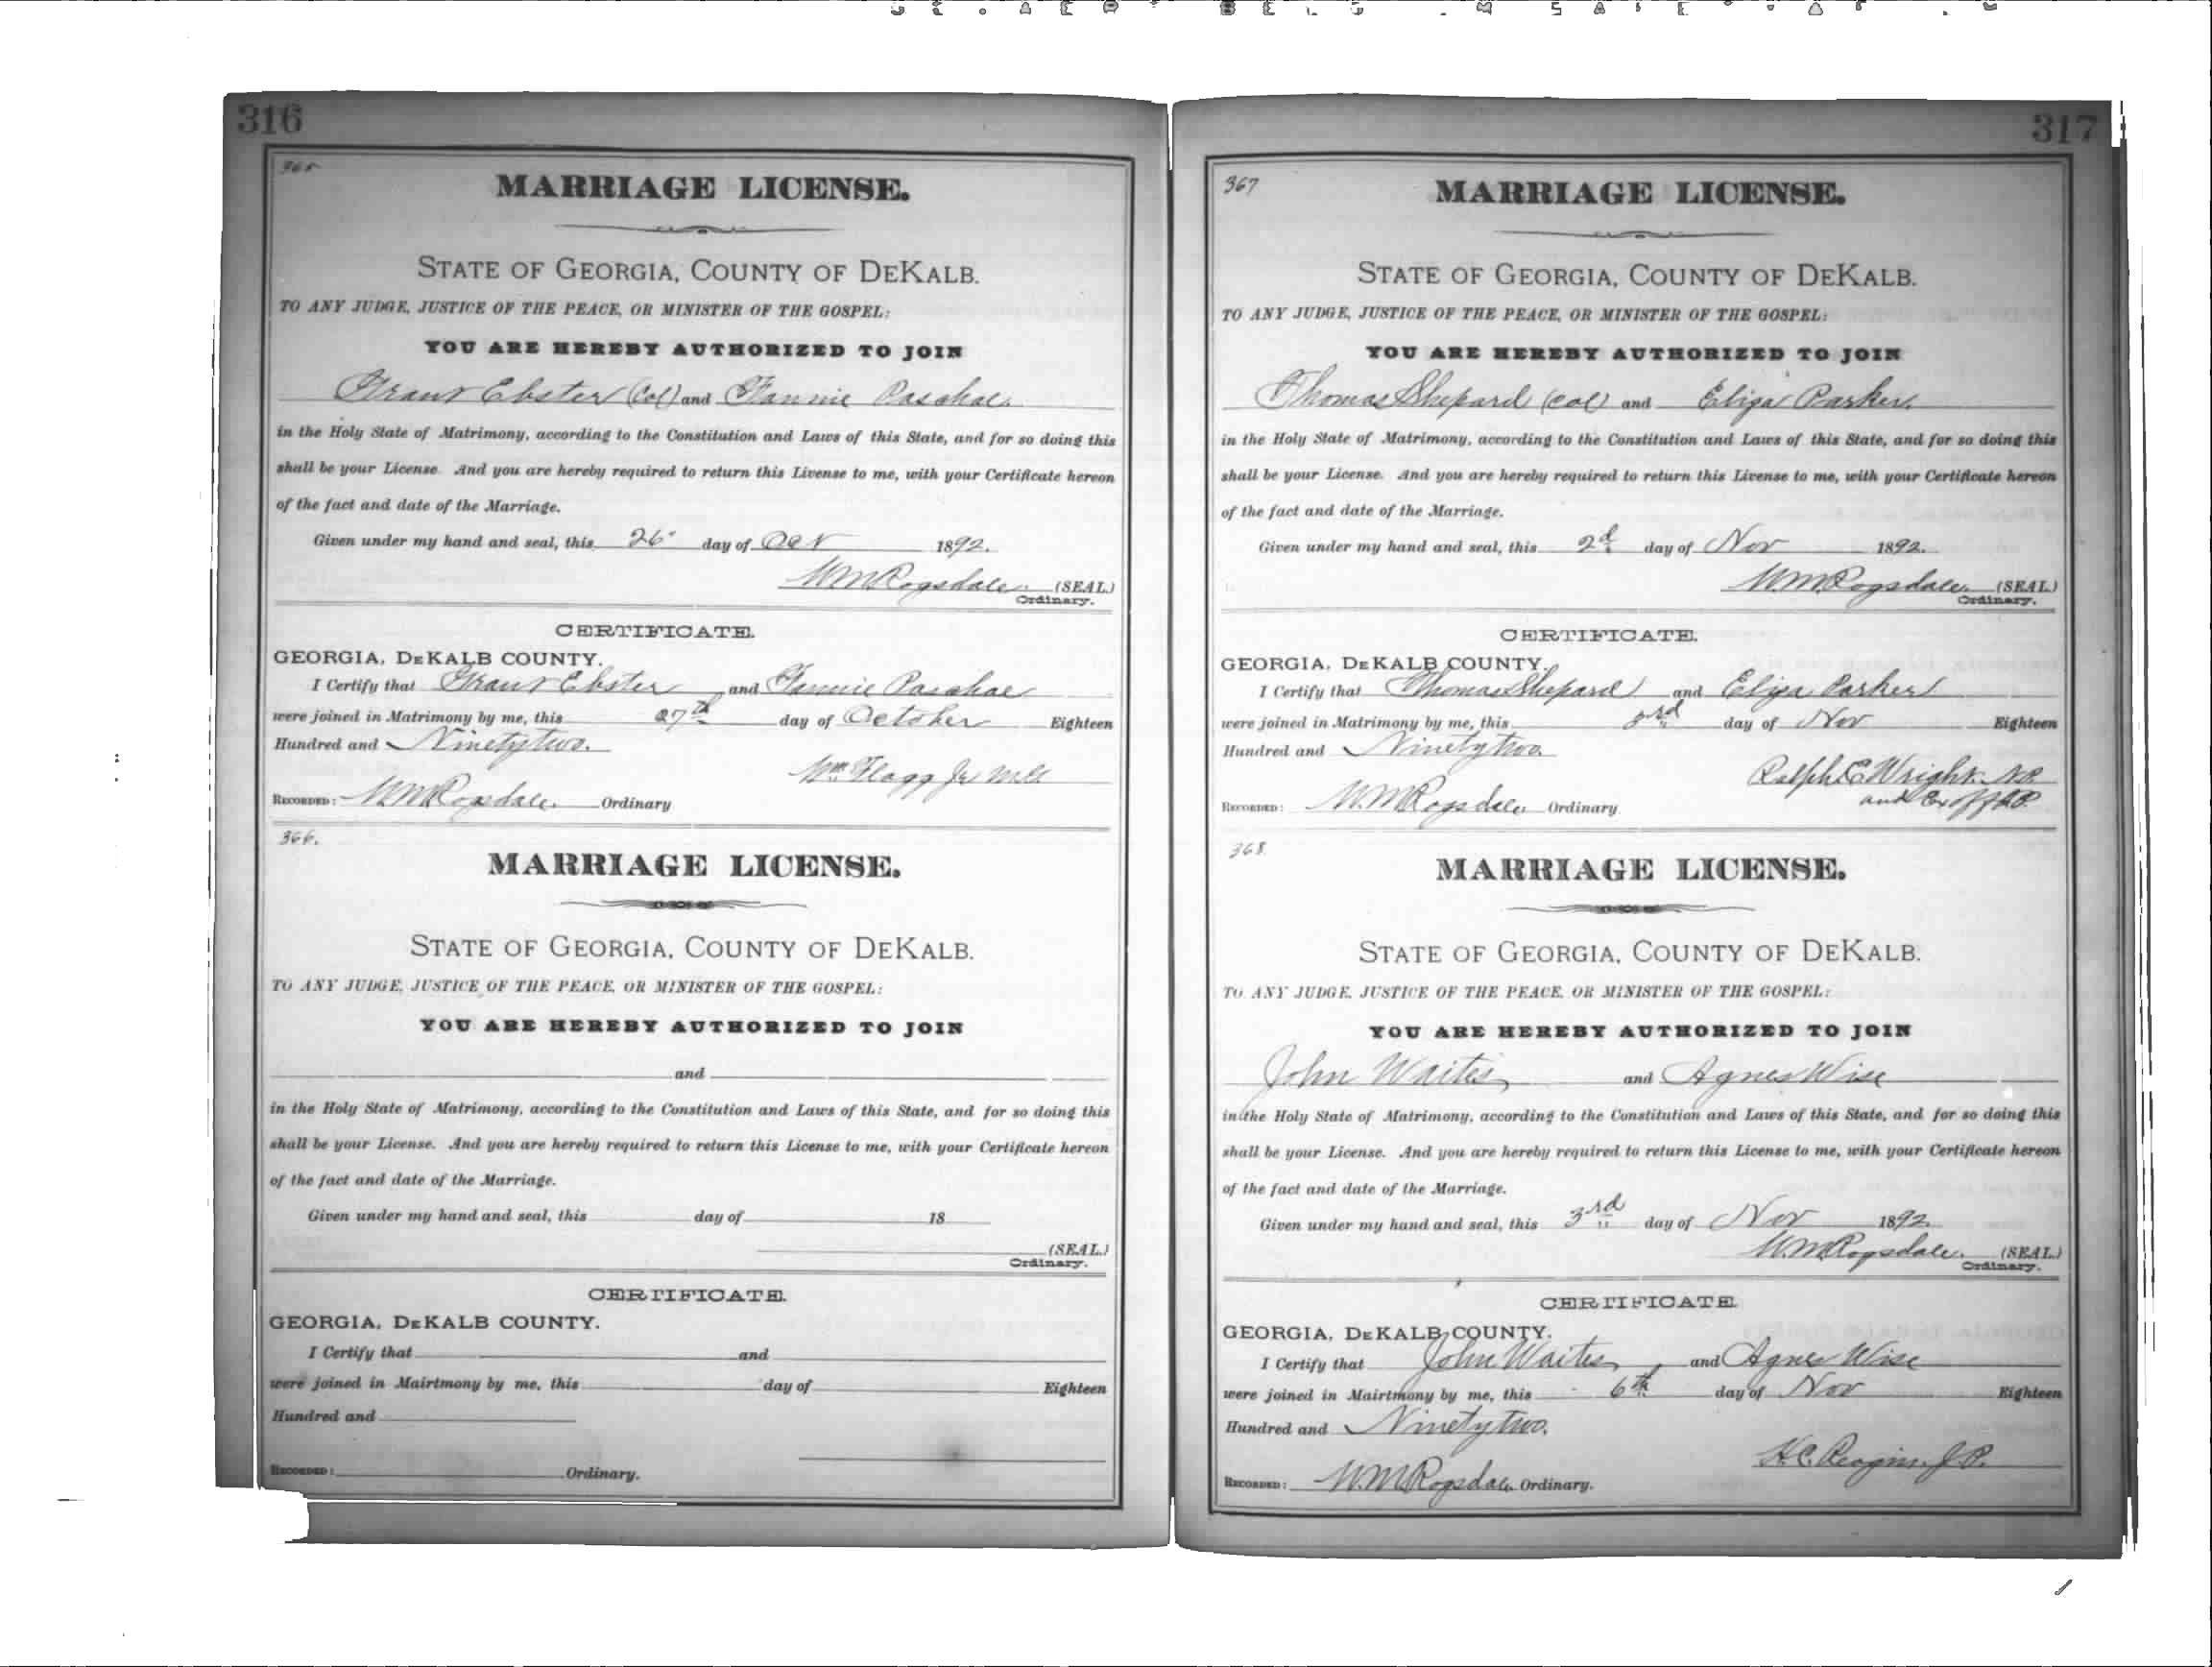 316
365
MARRIAGE LICENSE.
STATE OF GEORGIA, COUNTY OF DEKALB.
TO ANY JUDGE, JUSTICE OF THE PEACE, OR MINISTER OF THE GOSPEL:
YOU ARE HEREBY AUTHORIZED TO JOIN
Grant Ebster (Col) and Fannie Paschal.
in the Holy State of Matrimony, according to the Constitution and Laws of this State, and for so doing this
shall be your License. And you are hereby required to return this License to me, with your Certificate hereon
of the fact and date of the Marriage.
Given under my hand and seal, this 26" day of Oct 1892.
W.M. Ragsdale (SEAL.)
Ordinary.
CERTIFICATE.
GEORGIA, DEKALB COUNTY.
I Certify that Grant Ebster and Fannie Paschal
were joined in Matrimony by me, this 27th day of October Eighteen
Hundred and Ninety two.
Wm Flagg Jr
RECORDED: W.M. Ragsdale. Ordinary
366.
MARRIAGE LICENSE.
STATE OF GEORGIA, COUNTY OF DEKALB.
TO ANY JUDGE, JUSTICE OF THE PEACE, OR MINISTER OF THE GOSPEL:
YOU ARE HEREBY AUTHORIZED TO JOIN
and
in the Holy State of Matrimony, according to the Constitution and Laws of this State, and for so doing this
shall be your License. And you are hereby required to return this License to me, with your Certificate hereon
of the fact and date of the Marriage.
Given under my hand and seal, this day of 18
(SEAL.)
Ordinary.
CERTIFICATE.
GEORGIA, DEKALB COUNTY.
I Certify that and
were joined in Mairtmony by me, this day of Eighteen
Hundred and
RECORDED: Ordinary.
317
367
MARRIAGE LICENSE.
STATE OF GEORGIA, COUNTY OF DEKALB.
TO ANY JUDGE, JUSTICE OF THE PEACE, OR MINISTER OF THE GOSPEL:
YOU ARE HEREBY AUTHORIZED TO JOIN
Thomas Shepard (Col) and Eliza Parker.
in the Holy State of Matrimony, according to the Constitution and Laws of this State, and for so doing this
shall be your License. And you are hereby required to return this License to me, with your Certificate hereon
of the fact and date of the Marriage.
Given under my hand and seal, this 2d day of Nov 1892.
W.M. Ragsdale. (SEAL.)
Ordinary.
CERTIFICATE.
GEORGIA, DEKALB COUNTY.
I Certify that Thomas Shepard and Eliza Parker
were joined in Matrimony by me, this 3rd day of Nov Eighteen
Hundred and Ninety two.
Ralph E Wright. N.P.
and Ex off J.P.
RECORDED: W.M. Ragsdale. Ordinary.
368
MARRIAGE LICENSE.
STATE OF GEORGIA, COUNTY OF DEKALB.
TO ANY JUDGE, JUSTICE OF THE PEACE, OR MINISTER OF THE GOSPEL:
YOU ARE HEREBY AUTHORIZED TO JOIN
John Waites and Agnes Wise
in the Holy State of Matrimony, according to the Constitution and Laws of this State, and for so doing this
shall be your License. And you are hereby required to return this License to me, with your Certificate hereon
of the fact and date of the Marriage.
Given under my hand and seal, this 3rd day of Nov 1892.
W.M. Ragsdale. (SEAL.)
Ordinary.
CERTIFICATE.
GEORGIA, DEKALB COUNTY.
I Certify that John Waites and Agnes Wise
were joined in Mairtmony by me, this 6th day of Nov Eighteen
Hundred and Ninety two.
H.C. Reagin. J.P.
RECORDED: W.M. Ragsdale. Ordinary.